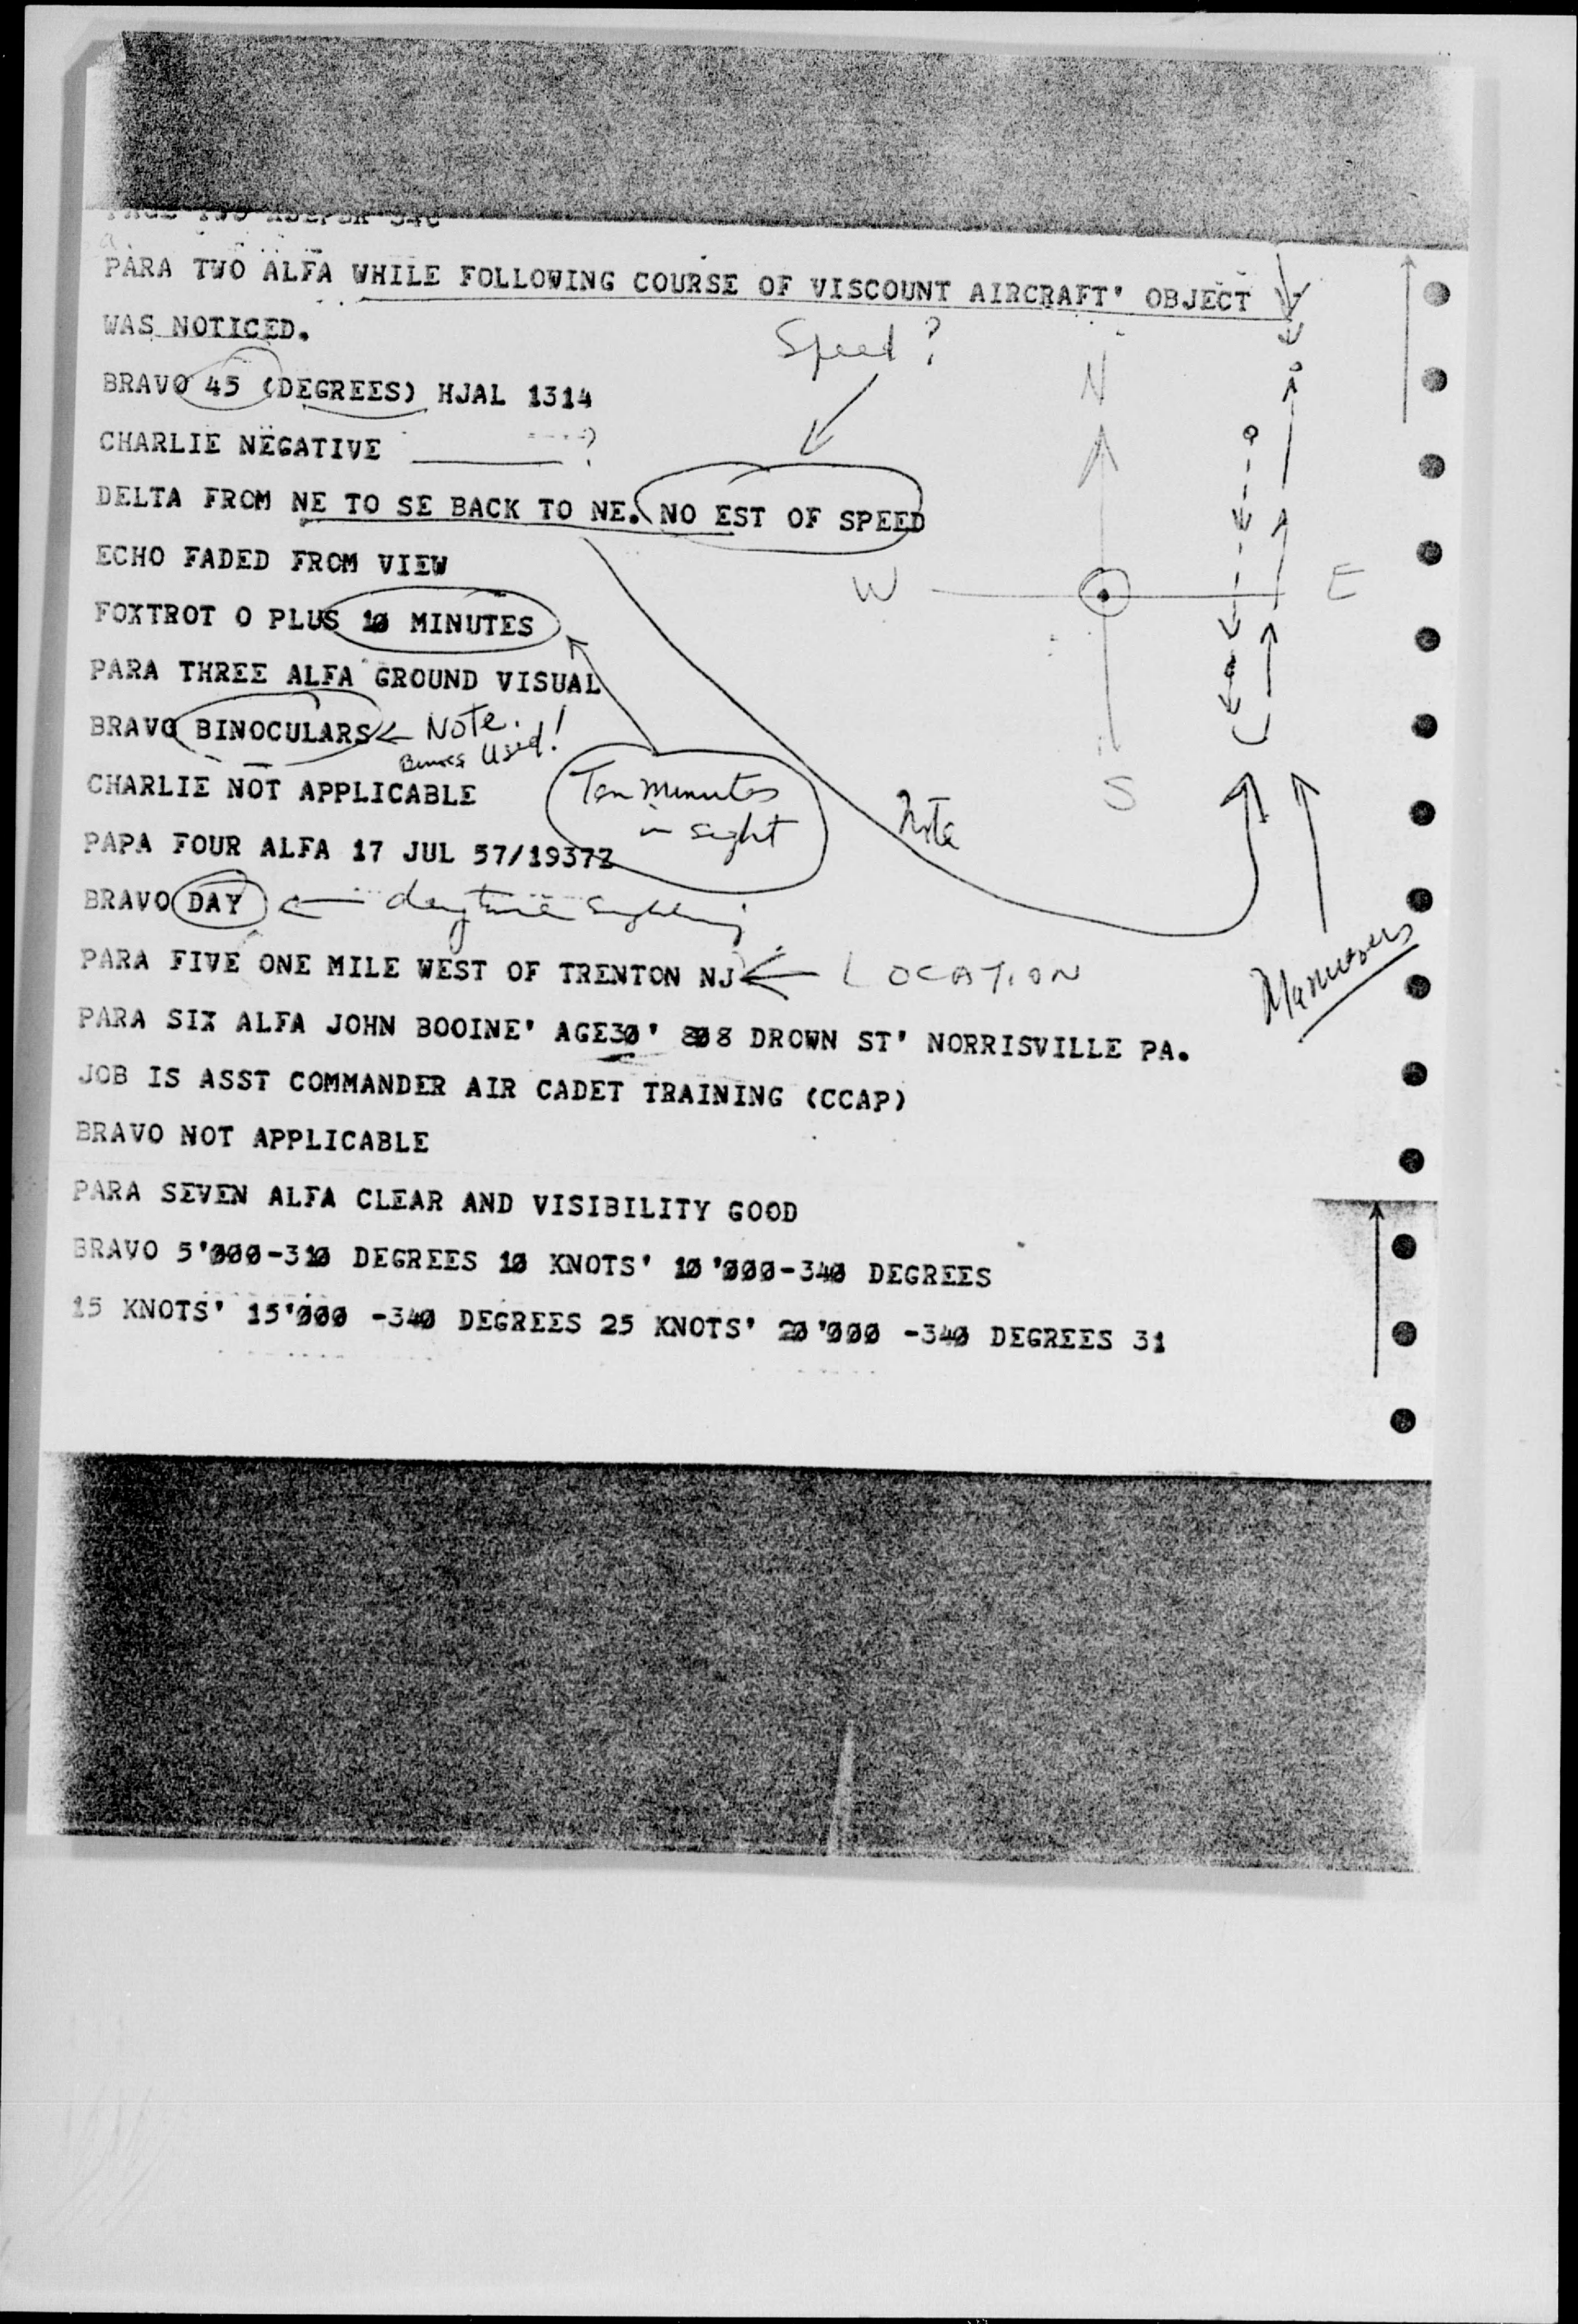 PARA TWO ALFA WHILE FOLLOWING COURSE OF VISCOUNT AIRCRAFT' OBJECT
WAS NOTICED.
Speed?
N
BRAVO 45 (DEGREES) HJAL 1314
CHARLIE NEGATIVE ?
DELTA FROM NE TO SE BACK TO NE. NO EST OF SPEED
ECHO FADED FROM VIEW
W E
FOXTROT O PLUS 10 MINUTES
PARA THREE ALFA GROUND VISUAL
BRAVO BINOCULARS Note.
Used!
CHARLIE NOT APPLICABLE
Ten minutes
in sight
S
Note
PAPA FOUR ALFA 17 JUL 57/1937Z
BRAVO DAY daytime sighting
PARA FIVE ONE MILE WEST OF TRENTON NJ LOCATION
Maneuvers
PARA SIX ALFA JOHN BOOINE' AGE30' 808 DROWN ST' NORRISVILLE PA.
JOB IS ASST COMMANDER AIR CADET TRAINING (CCAP)
BRAVO NOT APPLICABLE
PARA SEVEN ALFA CLEAR AND VISIBILITY GOOD
BRAVO 5'000-310 DEGREES 10 KNOTS' 10'000-340 DEGREES
15 KNOTS' 15'000 -340 DEGREES 25 KNOTS' 20'000 -340 DEGREES 31